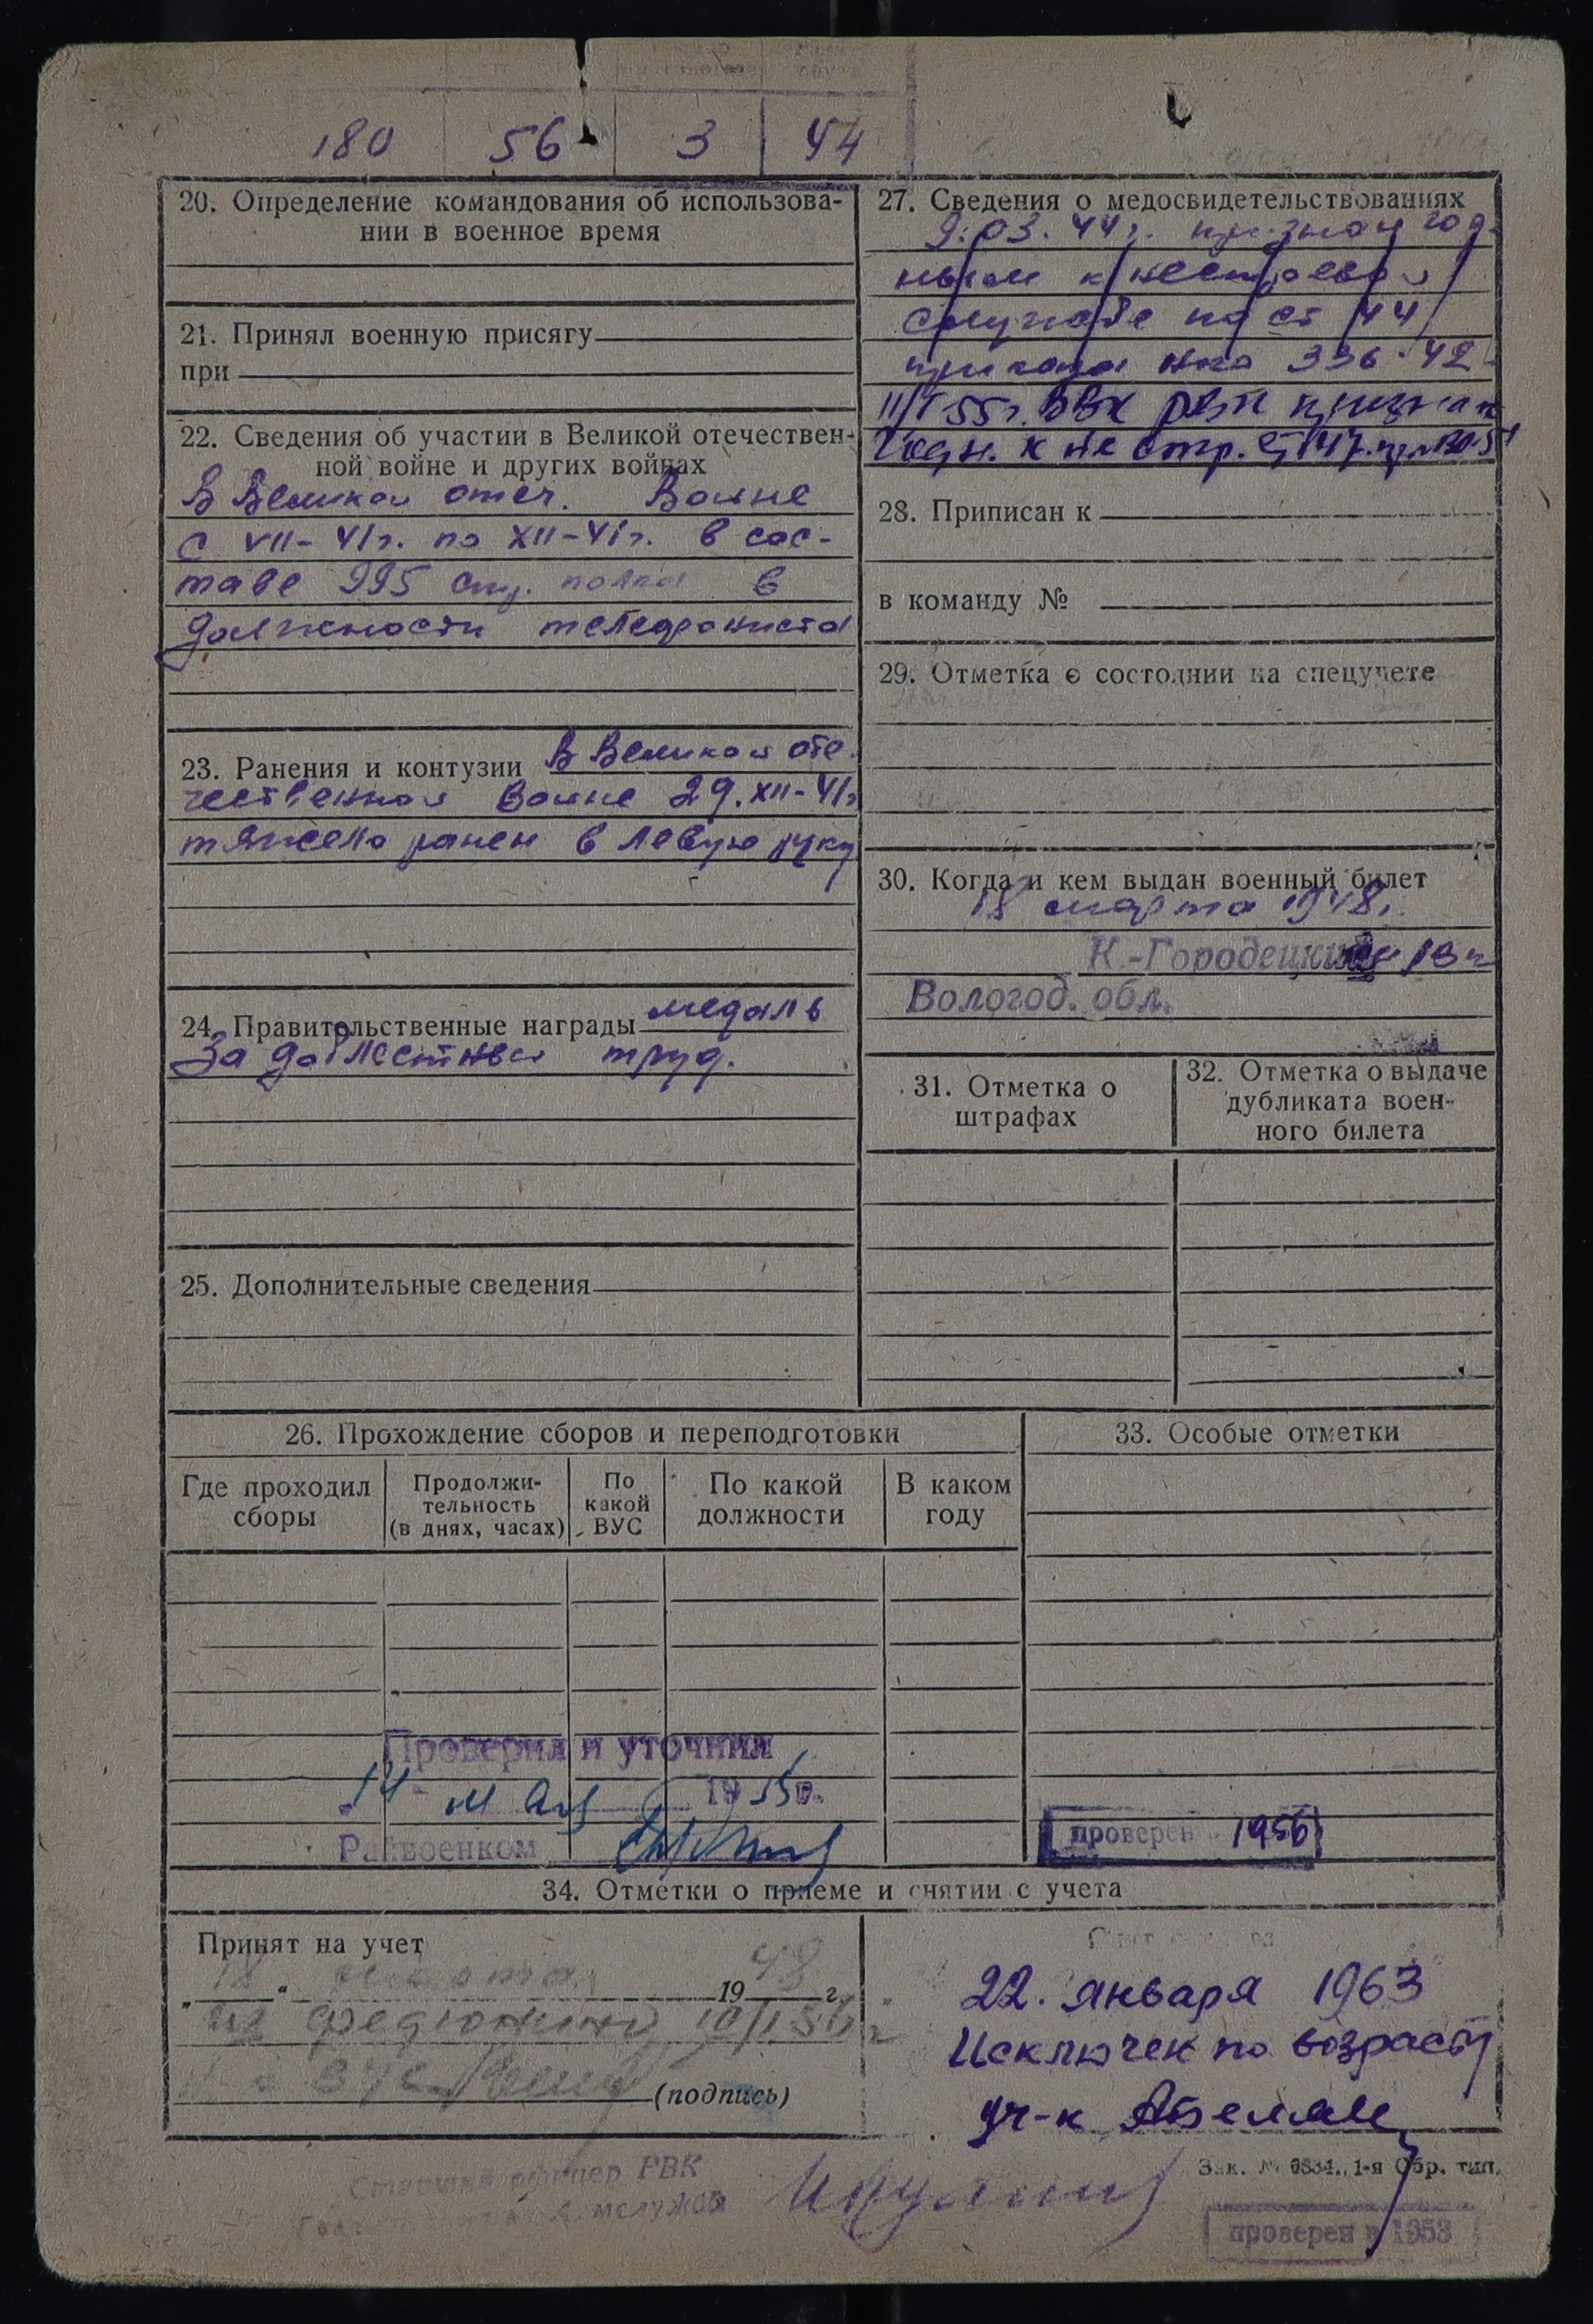 180 56 3 44
20. Определение командования об использова-
нии в военное время
21. Принял военную присягу
при
22. Сведения об участии в Великой отечествен-
ной войне и других войнах
В Великой отеч. Войне
с VII-41г. по XII-41г. в сос-
таве 995 стр. полка в
должности телефониста
23. Ранения и контузии В Великой оте-
чественной Войне 29.XII-41г
тяжело ранен в левую руку
24. Правительственные награды медаль
За доблестный труд.
25. Дополнительные сведения
27. Сведения о медосвидетельствованиях
9.03.44г. признан год-
ным к нестроевой
службе по ст 44
приказа нко 336-42
11/I 55г. ВВК РВК признан
годн. к не стр. ст 47
28. Приписан к
в команду №
29. Отметка о состоянии на спецучете
30. Когда и кем выдан военный билет
18 марта 1948г.
К.-Городецким РВК
Вологод. обл.
31. Отметка о
штрафах
32. Отметка о выдаче
дубликата воен-
ного билета
26. Прохождение сборов и переподготовки
Где проходил
сборы
Продолжи-
тельность
(в днях, часах)
По
какой
ВУС
По какой
должности
В каком
году
33. Особые отметки
Проверил и уточнил
14 мая 1955г.
Райвоенком
проверен 1956
34. Отметки о приеме и снятии с учета
Принят на учет
„18“ марта 1948 г.
(подпись)
22. января 1963
Исключен по возрасту
уч-к
Старший офицер РВК
Зак. № 6834. 1-я Обр. тип.
проверен в 1953